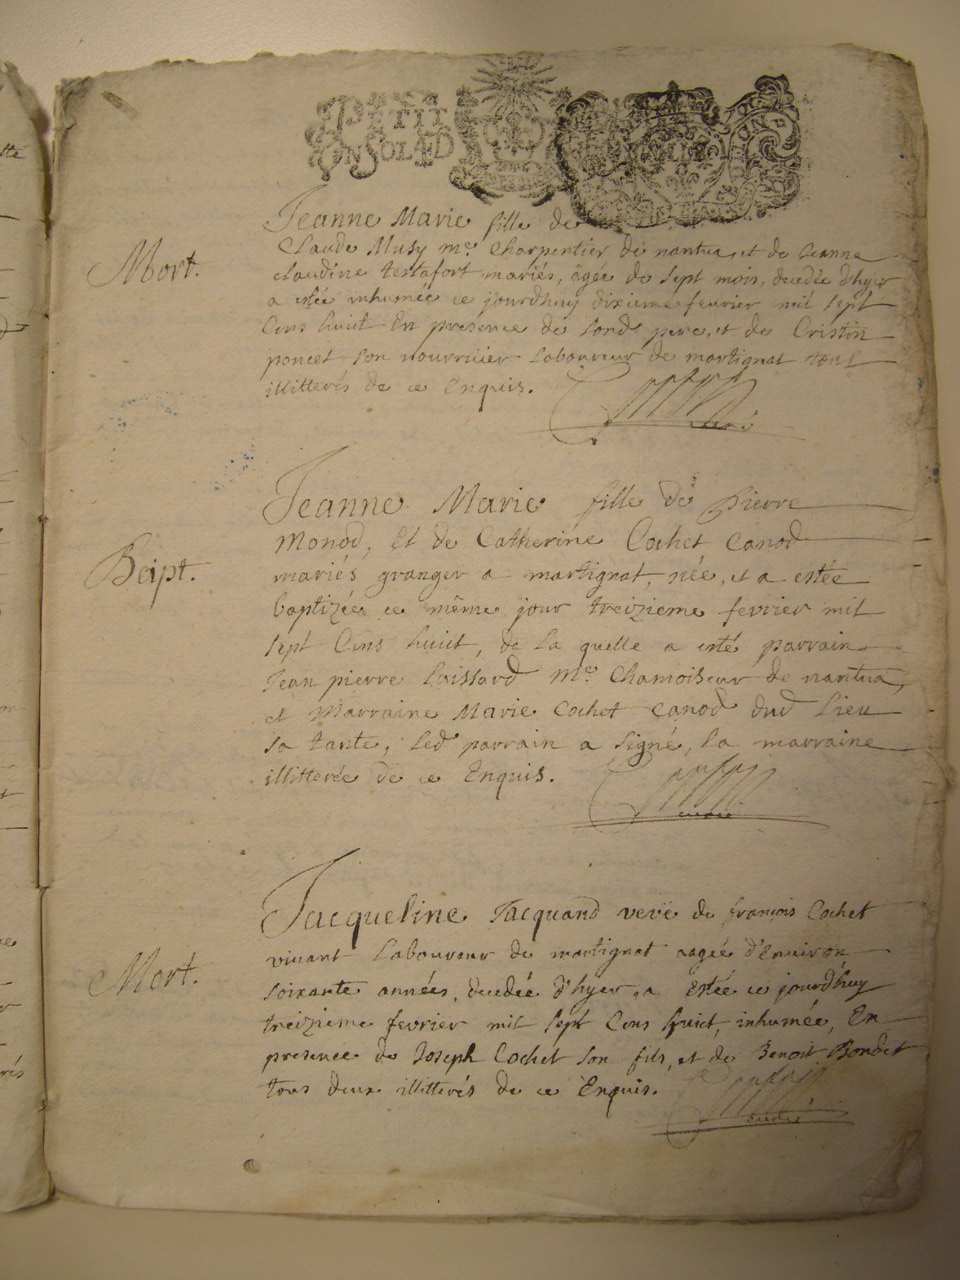 PETIT
ON SOL 4 D
Jeanne Marie fille de
Mort.
Claude Musy me. Charpentier de nantua, et de Jeanne
claudine testafort mariés, âgée de sept mois, decedée d'hyer
a estée inhumée ce jourdhuy dixieme fevrier mil sept
Cens huict En presence de sond. pere, et de Cristin
poncet son nourricier Laboureur de martignat tous
illitterés de ce Enquis.
curé
Jeanne Marie fille de Pierre
Monod, Et de Catherine Cochet Canod
Bapt.
mariés granger a martignat, née, et a estée
baptizée ce même jour treizieme fevrier mil
sept Cens huict, de la quelle a esté parrain
Jean pierre Me. Chamoiseur de nantua,
et Marraine Marie Cochet Canod dud Lieu
sa tante, led parrain a signé, la marraine
illitterée de ce Enquis.
curé
Jacqueline Jacquand veve de françois Cochet
vivant Laboureur de martignat aagée d'Environ
Mort.
soixante années, decedée d'hyer, a Estée ce jourd'huy
treizieme fevrier mil sept Cens huict, inhumée, En
presence de Joseph Cochet son fils, et de Benoit Bondet
tous deux illitterés de ce Enquis.
curé